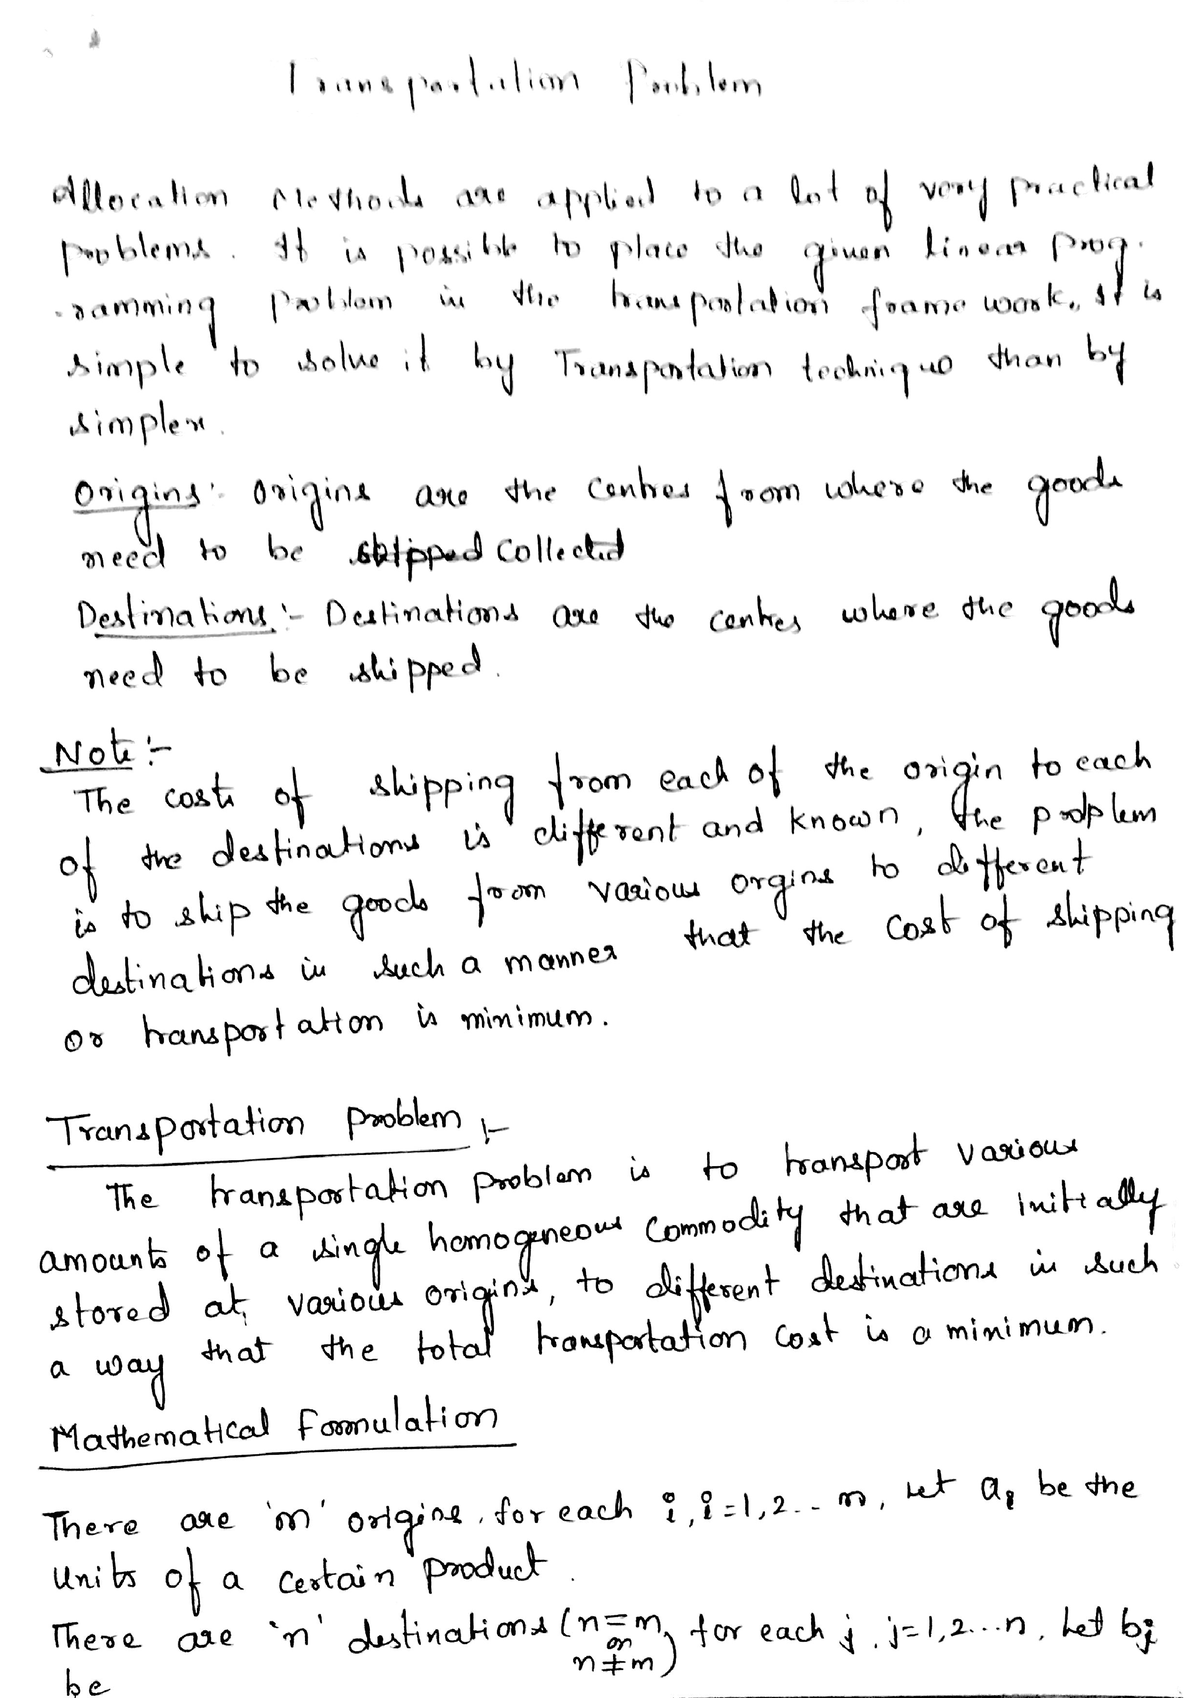 Transportation Problem
Allocation Methods are applied to a lot of very practical
problems. It is possible to place the given linear prog-
-ramming problem in the transportation frame work., It is
simple to solve it by Transportation technique than by
simplex.
Origins:- Origins are the centres from where the goods
need to be shipped collected
Destinations:- Destinations are the centres where the goods
need to be shipped.
Note:-
The costs of shipping from each of the origin to each
of the destinations is different and known, the problem
is to ship the goods from various orgins to different
destinations in such a manner that the cost of shipping
or transportation is minimum.
Transportation problem :-
The transportation problem is to transport various
amounts of a single homogeneous commodity that are initially
stored at, various origins, to different destinations in such
a way that the total transportation cost is a minimum.
Mathematical Formulation
There are 'm' origins. for each i, i=1,2.. m, let ai be the
units of a certain product.
There are 'n' destinations (n=m or n≠m) for each j, j=1,2...n, Let bj
be